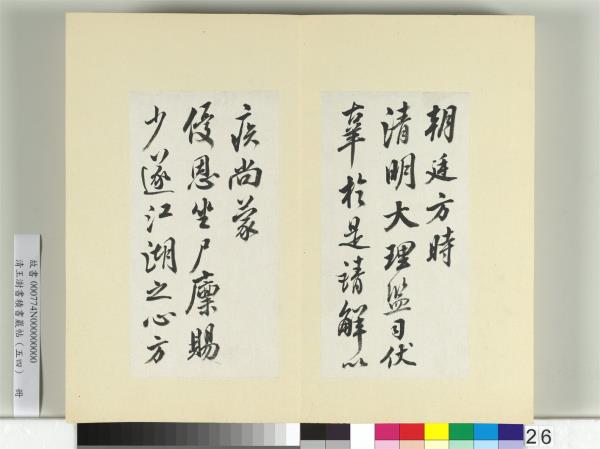 朝廷方時
清明大理監司伏
辜於是請解以
疾尚蒙
優恩坐尸廩賜
少遂江湖之心方
故書 000774N000000000
清王澍書積書巖帖(五四) 冊
26